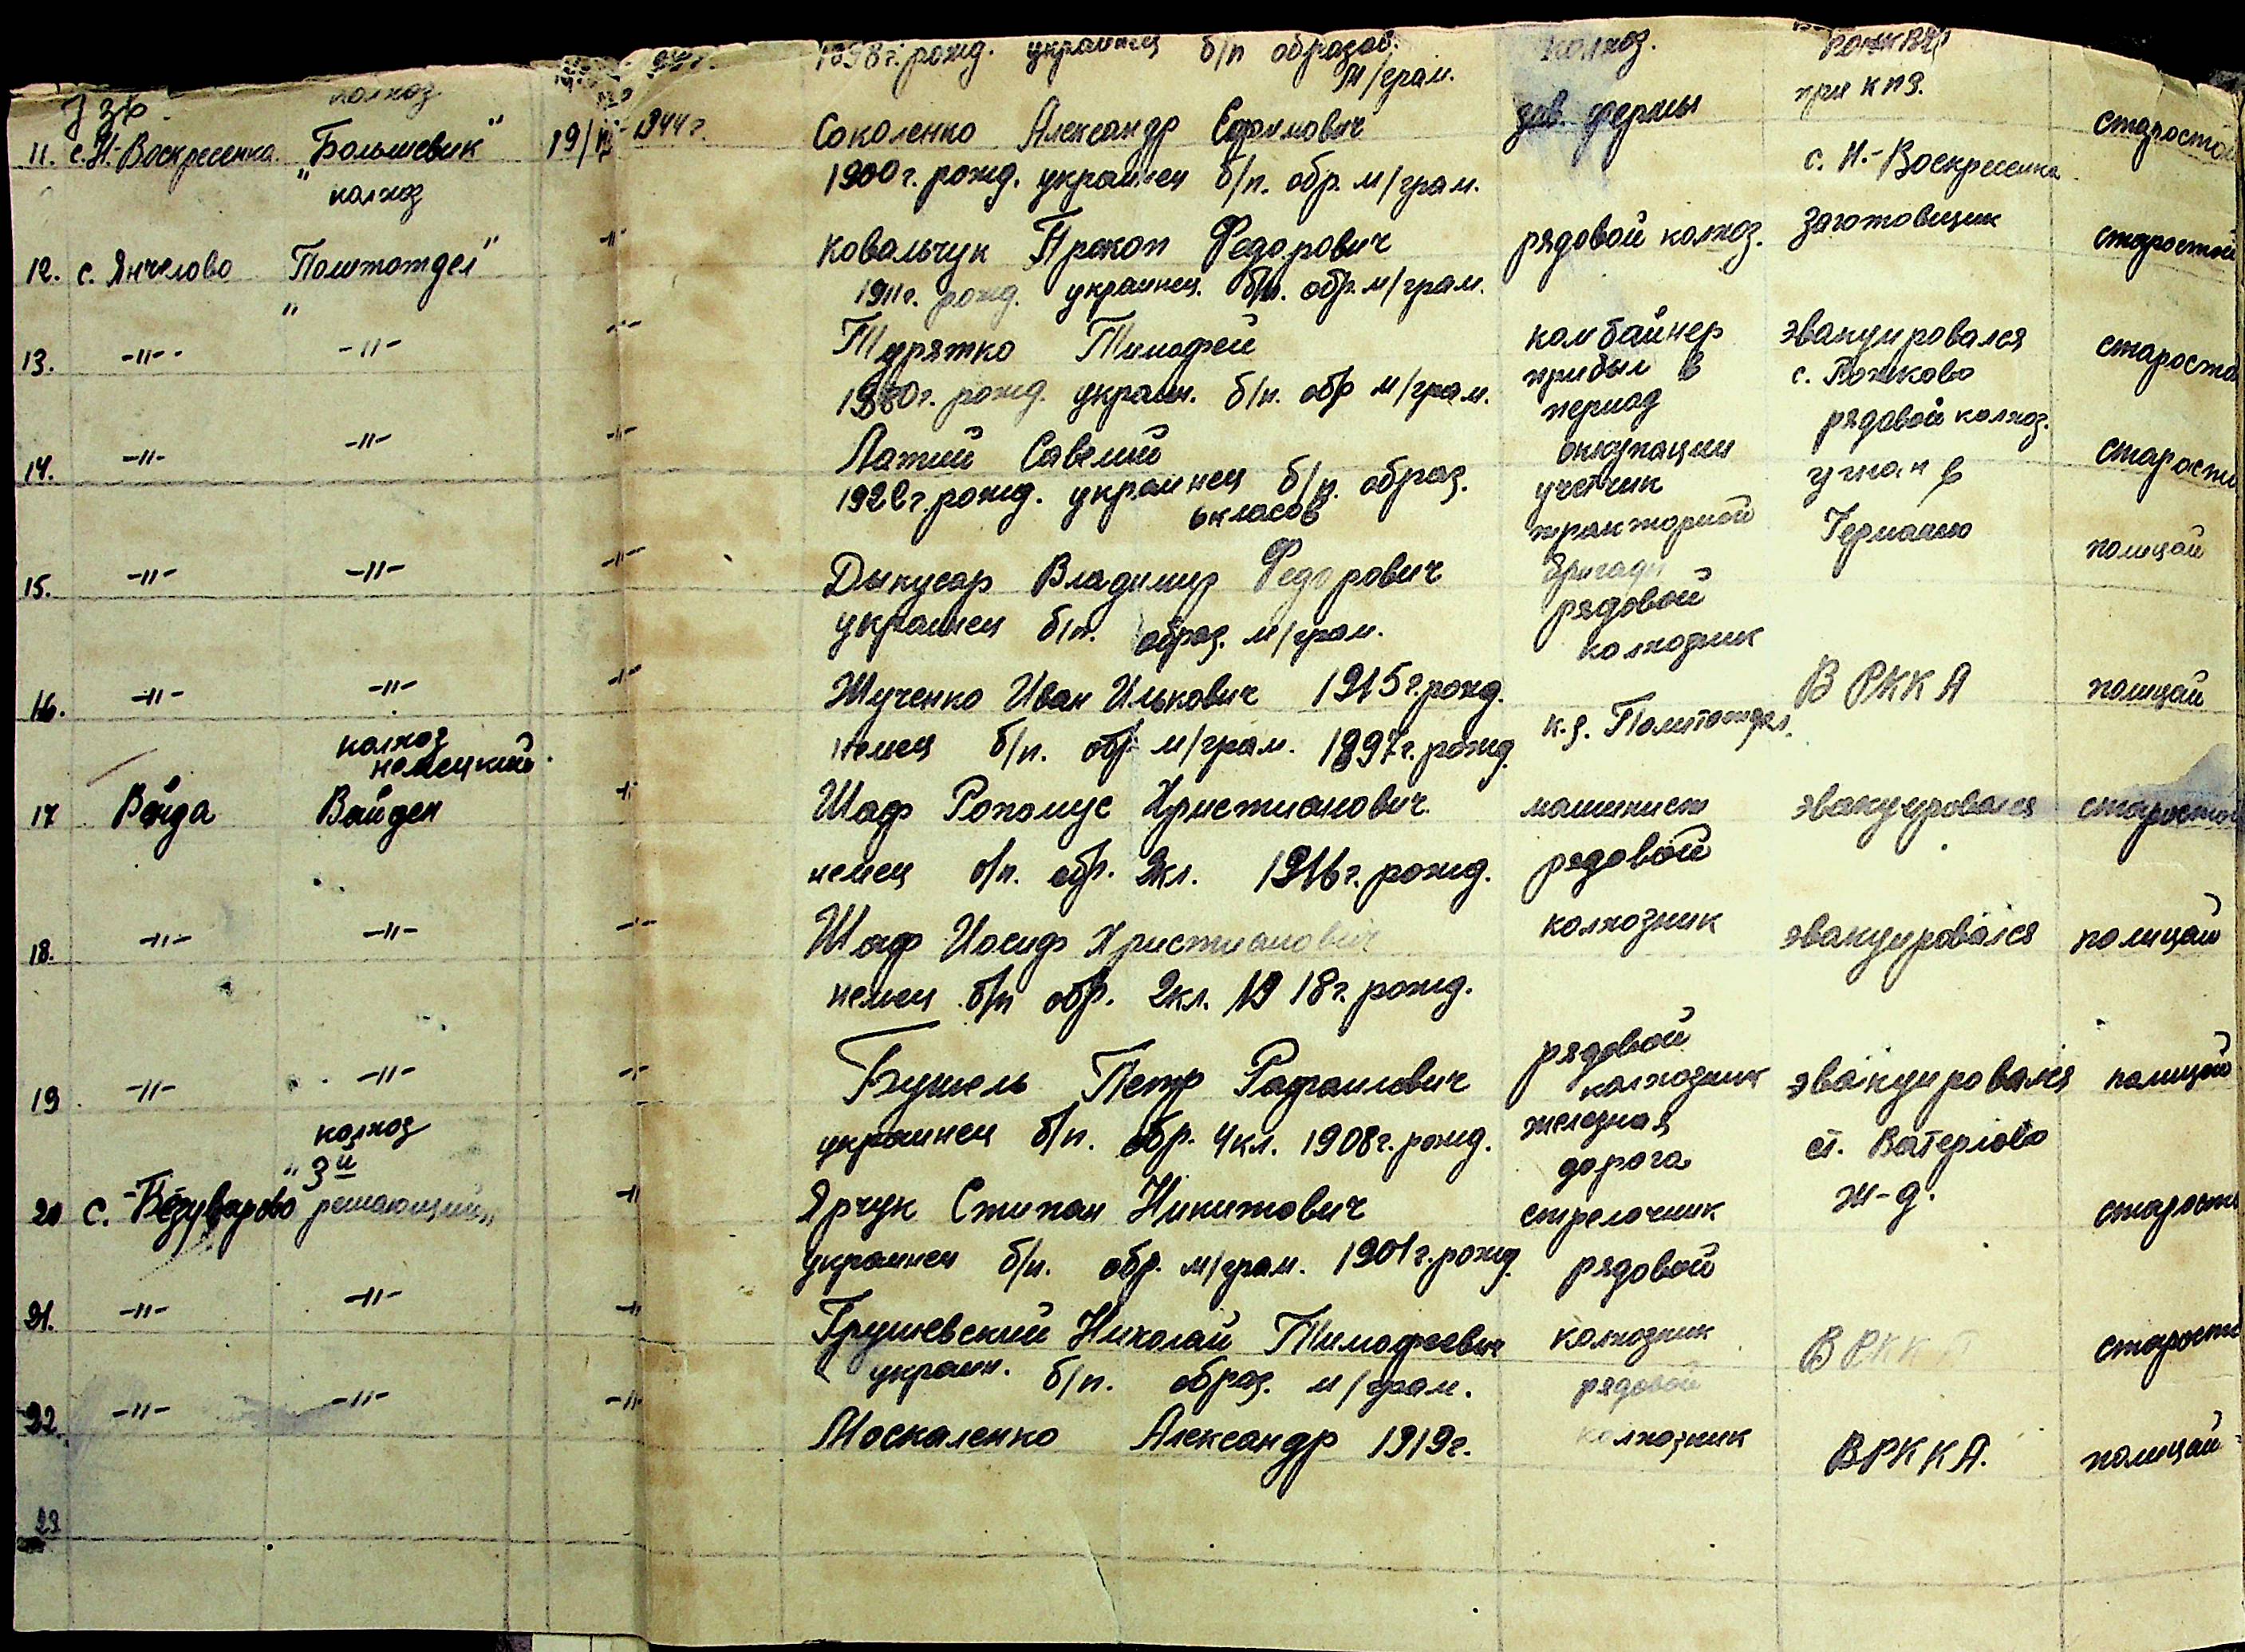 1898 г. рожд. украинец б/п образов. колхоз.
м/грам. при КПЗ.
колхоз
11. с. Н.-Воскресенка "Большевик" 19/ 1944 г. Соколенко Александр Ефимович зав. фермы с. Н.-Воскресенка старостой
1900 г. рожд. украинец б/п. обр. м/грам.
колхоз
12. с. Янчелово "Политотдел" -"- Ковальчук Прокоп Федорович рядовой колхоз. Заготовщик старостой
1911 г. рожд. украинец. б/п. обр. м/грам.
13. -"- -"- -"- Турятко Тимофей комбайнер эвакуировался староста
прибыл в с. Рожково
1880 г. рожд. украин. б/п. обр м/грам. период рядовой колхоз.
14. -"- -"- -"- Латий Савелий оккупации угнан в староста
1922 г. рожд. украинец б/п. образ. учетчик
6 класов тракторной Германию
15. -"- -"- -"- Дыкусар Владимир Федорович бригады полицай
рядовой
украинец б/п. образ. м/грам. колхозник
16. -"- -"- -"- Жученко Иван Илькович 1915 г. рожд. В РККА полицай
колхоз к.з. Политотдел.
немецкий немец б/п. обр м/грам. 1897 г. рожд.
17 Вайда Вайден -"- Шаф Ропомус Христианович машинист эвакуировался старостой
немец б/п. обр. 2кл. 1916 г. рожд. рядовой
18. -"- -"- -"- Шаф Иосиф Христианович колхозник эвакуировался полицай
немец б/п обр. 2кл. 1918 г. рожд.
рядовой
19 -"- -"- -"- Бушель Петр Рафаилович колхозник эвакуировался полицай
колхоз украинец б/п. обр. 4кл. 1908 г. рожд. железная ст. Ватерлово
"3й дорога
20 с. Безуварово решающий" -"- Ярчук Стипан Никитович стрелочник ж-д. староста
украинец б/п. обр. м/грам. 1901 г. рожд. рядовой
21. -"- -"- -"- Грушевский Николай Тимофеевич колхозник В РККА староста
украин. б/п. образ. м/грам. рядовой
22. -"- -"- -"- Москаленко Александр 1919 г. колхозник В РККА. полицай
23